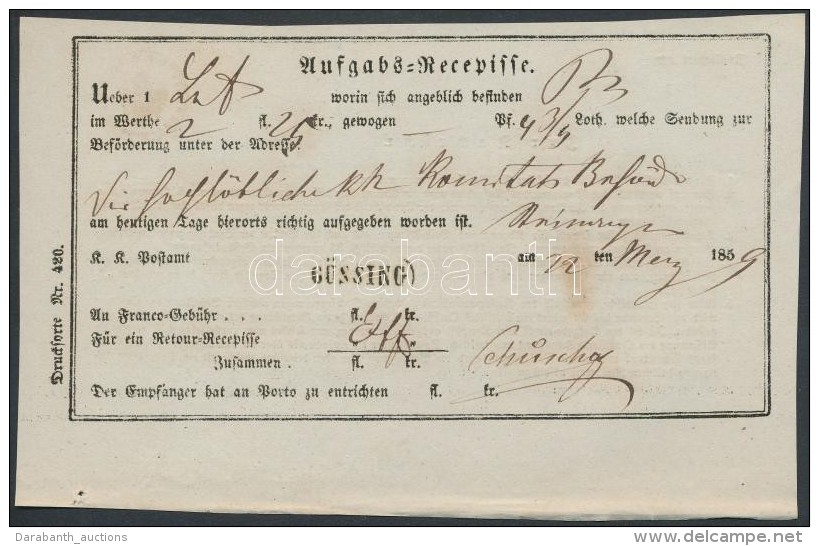 Aufgabs=Recepisse.
Ueber 1 worin sich angeblich befinden
im Werthe 2 fl. 25 kr., gewogen — Pf. 4 3/4 Loth, welche Sendung zur
Beförderung unter der Adresse:
Die hochlöbliche kk Komitats Behörde
am heutigen Tage hierorts richtig aufgegeben worden ist.
K. K. Postamt am 12 ten Merz 1859
GÜSSING)
An Franco=Gebühr . . . fl. kr.
Für ein Retour=Recepisse " "
Zusammen . fl. kr.
Der Empfänger hat an Porto zu entrichten fl. kr.
Drucksorte Nr. 420.
darabanth
Darabanth_auctions
www.delcampe.net